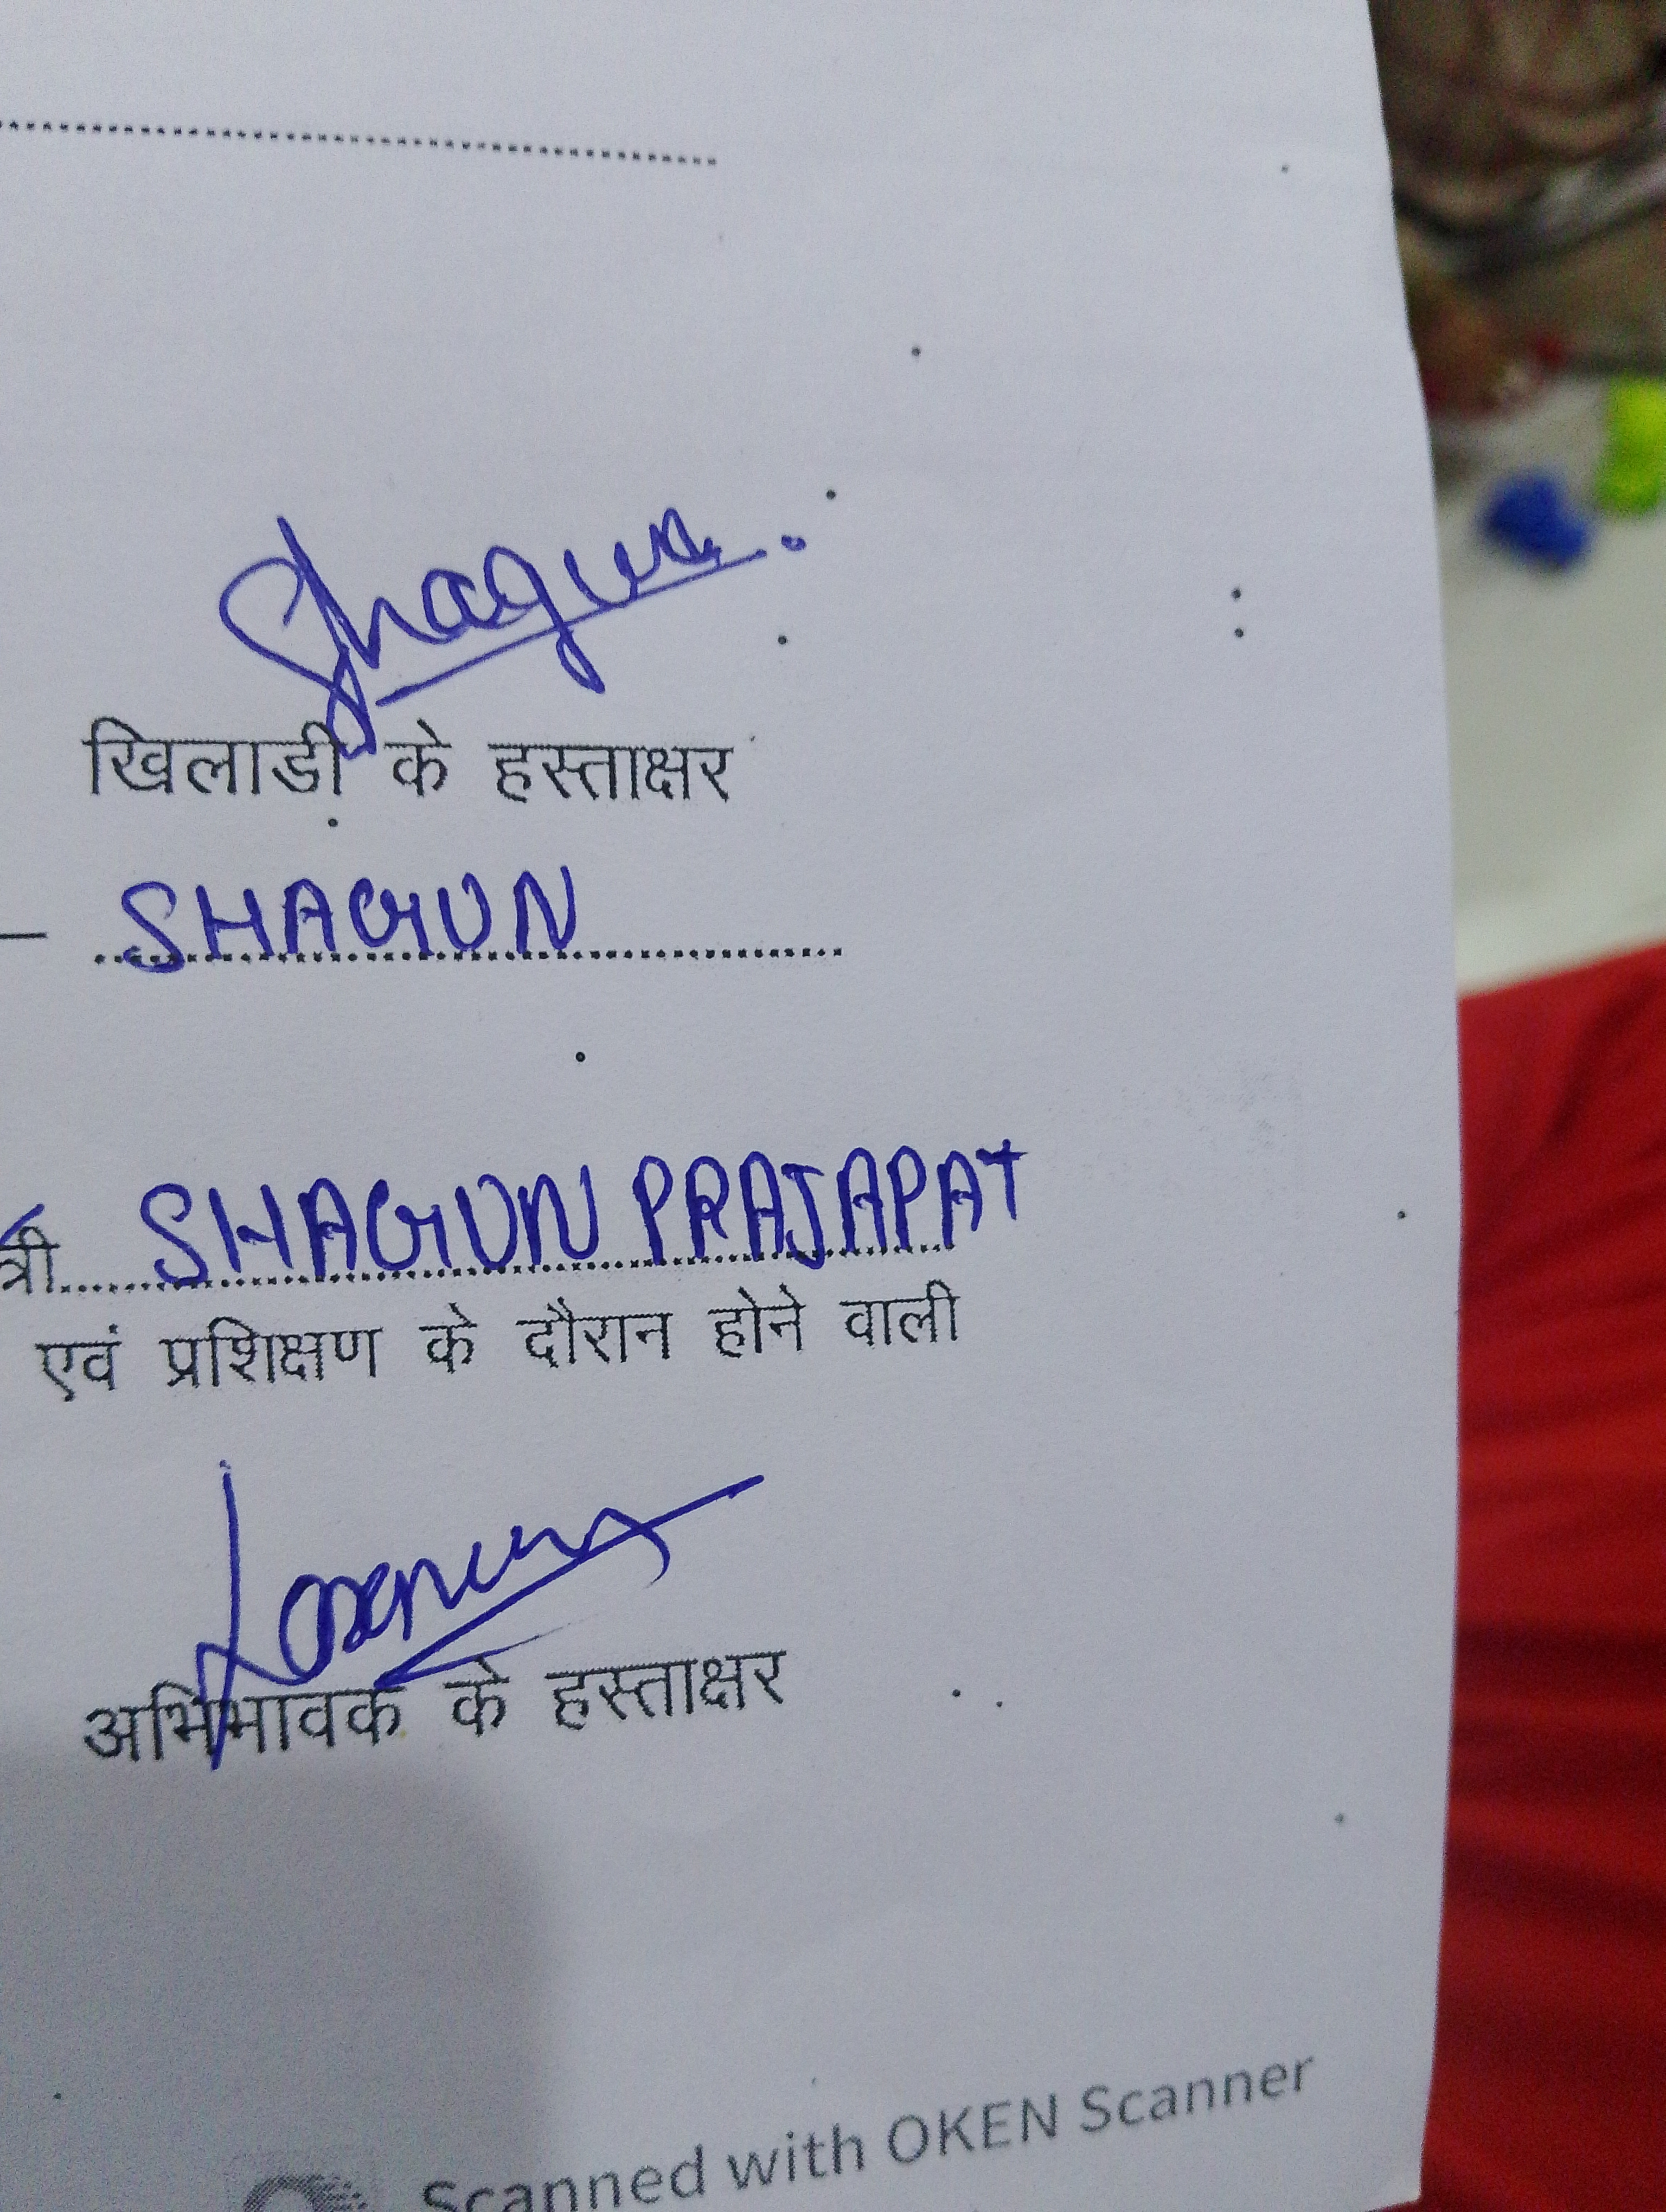 Shagun.
खिलाडी के हस्ताक्षर
— SHAGUN
त्री SHAGUN PRAJAPAT
एवं प्रशिक्षण के दौरान होने वाली
अभिभावक के हस्ताक्षर
Scanned with OKEN Scanner